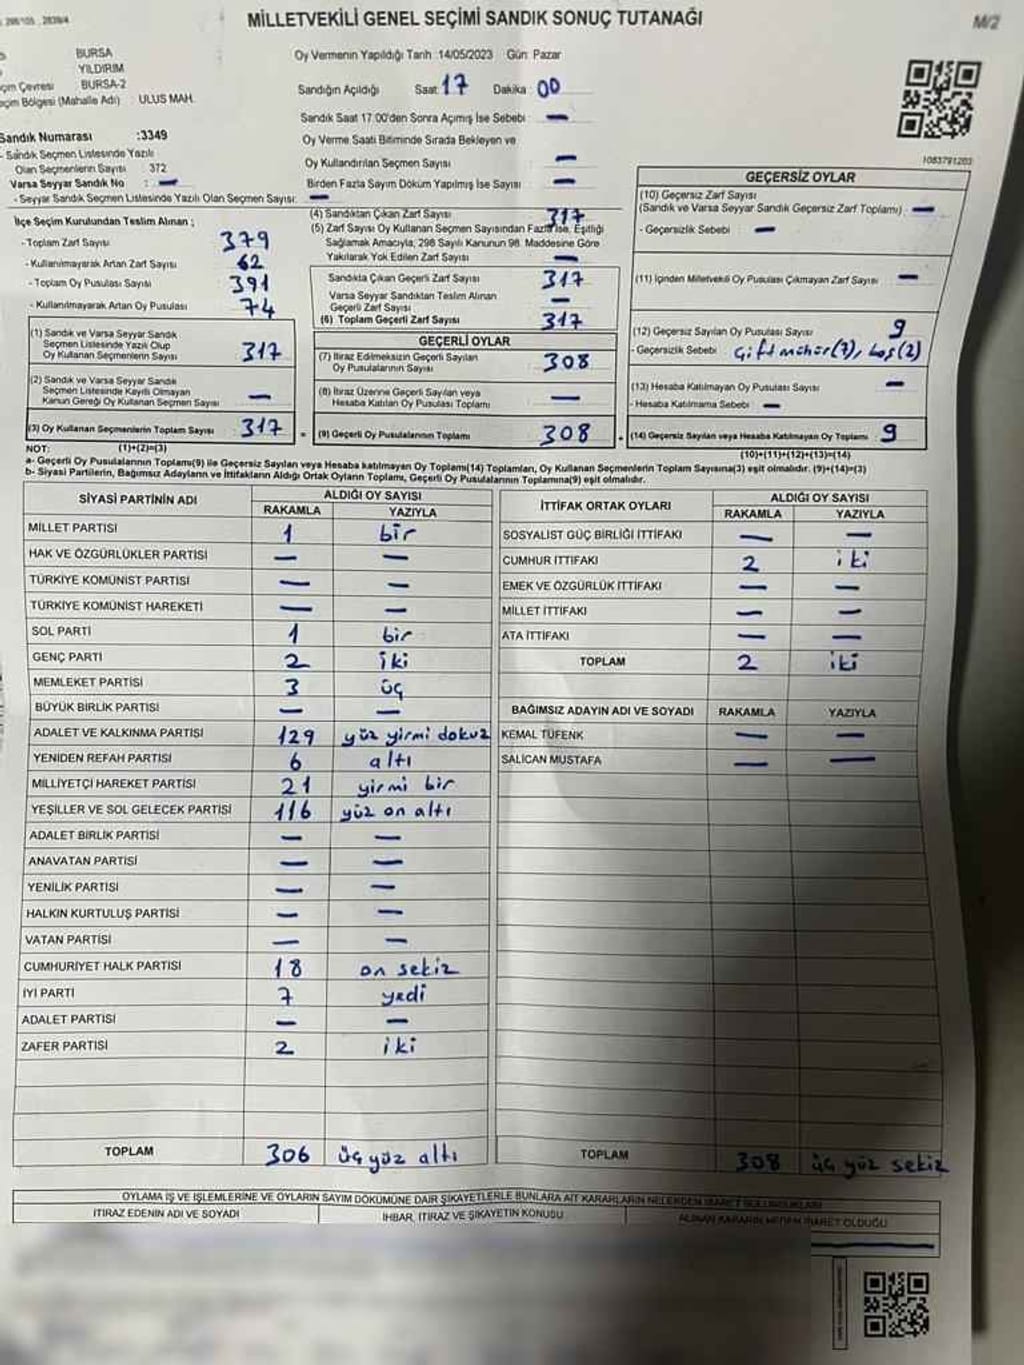 MİLLETVEKİLİ GENEL SEÇİMİ SANDIK SONUÇ TUTANAĞI
M/2
BURSA
YILDIRIM
Çevresi : BURSA-2
Bölgesi (Mahalle Adı) : ULUS MAH.
Oy Vermenin Yapıldığı Tarih :14/05/2023 Gün: Pazar
Sandığın Açıldığı Saat 17 Dakika : 00
Sandık Saat 17:00'den Sonra Açımış İse Sebebi : —
Oy Verme Saati Bitiminde Sırada Bekleyen ve
Oy Kullandırılan Seçmen Sayısı —
Birden Fazla Sayım Döküm Yapılmış İse Sayısı —
1083791203
Sandık Numarası :3349
- Sandık Seçmen Listesinde Yazılı
Olan Seçmenlerin Sayısı 372
Varsa Seyyar Sandık No : —
- Seyyar Sandık Seçmen Listesinde Yazılı Olan Seçmen Sayısı: —
İlçe Seçim Kurulundan Teslim Alınan ;
- Toplam Zarf Sayısı 379
- Kullanılmayarak Artan Zarf Sayısı 62
- Toplam Oy Pusulası Sayısı 391
- Kullanılmayarak Artan Oy Pusulası 74
(1) Sandık ve Varsa Seyyar Sandık
Seçmen Listesinde Yazılı Olup
Oy Kullanan Seçmenlerin Sayısı 317
(2) Sandık ve Varsa Seyyar Sandık
Seçmen Listesinde Kayıtlı Olmayan
Kanun Gereği Oy Kullanan Seçmen Sayısı —
(3) Oy Kullanan Seçmenlerin Toplam Sayısı 317
(4) Sandıktan Çıkan Zarf Sayısı 317
(5) Zarf Sayısı Oy Kullanan Seçmen Sayısından Fazla İse, Eşitliği
Sağlamak Amacıyla, 298 Sayılı Kanunun 98. Maddesine Göre
Yakılarak Yok Edilen Zarf Sayısı —
Sandıkta Çıkan Geçerli Zarf Sayısı 317
Varsa Seyyar Sandıktan Teslim Alınan
Geçerli Zarf Sayısı —
(6) Toplam Geçerli Zarf Sayısı 317
GEÇERLİ OYLAR
(7) İtiraz Edilmeksizin Geçerli Sayılan
Oy Pusulalarının Sayısı 308
(8) İtiraz Üzerine Geçerli Sayılan veya
Hesaba Katılan Oy Pusulası Toplamı —
(9) Geçerli Oy Pusulalarının Toplamı 308
GEÇERSİZ OYLAR
(10) Geçersiz Zarf Sayısı
(Sandık ve Varsa Seyyar Sandık Geçersiz Zarf Toplamı) : —
- Geçersizlik Sebebi : —
(11) İçinden Milletvekili Oy Pusulası Çıkmayan Zarf Sayısı : —
(12) Geçersiz Sayılan Oy Pusulası Sayısı 9
- Geçersizlik Sebebi : Çift mühür(7), boş(2)
(13) Hesaba Katılmayan Oy Pusulası Sayısı —
- Hesaba Katılmama Sebebi : —
(14) Geçersiz Sayılan veya Hesaba Katılmayan Oy Toplamı : 9
NOT: (1)+(2)=(3)
(10)+(11)+(12)+(13)=(14)
a- Geçerli Oy Pusulalarının Toplamı(9) ile Geçersiz Sayılan veya Hesaba katılmayan Oy Toplamı(14) Toplamları, Oy Kullanan Seçmenlerin Toplam Sayısına(3) eşit olmalıdır. (9)+(14)=(3)
b- Siyasi Partilerin, Bağımsız Adayların ve İttifakların Aldığı Ortak Oyların Toplamı, Geçerli Oy Pusulalarının Toplamına(9) eşit olmalıdır.
SİYASİ PARTİNİN ADI ALDIĞI OY SAYISI
RAKAMLA YAZIYLA
MİLLET PARTİSİ 1 bir
HAK VE ÖZGÜRLÜKLER PARTİSİ — —
TÜRKİYE KOMÜNİST PARTİSİ — —
TÜRKİYE KOMÜNİST HAREKETİ — —
SOL PARTİ 1 bir
GENÇ PARTİ 2 iki
MEMLEKET PARTİSİ 3 üç
BÜYÜK BİRLİK PARTİSİ — —
ADALET VE KALKINMA PARTİSİ 129 yüz yirmi dokuz
YENİDEN REFAH PARTİSİ 6 altı
MİLLİYETÇİ HAREKET PARTİSİ 21 yirmi bir
YEŞİLLER VE SOL GELECEK PARTİSİ 116 yüz on altı
ADALET BİRLİK PARTİSİ — —
ANAVATAN PARTİSİ — —
YENİLİK PARTİSİ — —
HALKIN KURTULUŞ PARTİSİ — —
VATAN PARTİSİ — —
CUMHURİYET HALK PARTİSİ 18 on sekiz
İYİ PARTİ 7 yedi
ADALET PARTİSİ — —
ZAFER PARTİSİ 2 iki
TOPLAM 306 üç yüz altı
İTTİFAK ORTAK OYLARI ALDIĞI OY SAYISI
RAKAMLA YAZIYLA
SOSYALİST GÜÇ BİRLİĞİ İTTİFAKI — —
CUMHUR İTTİFAKI 2 iki
EMEK VE ÖZGÜRLÜK İTTİFAKI — —
MİLLET İTTİFAKI — —
ATA İTTİFAKI — —
TOPLAM 2 iki
BAĞIMSIZ ADAYIN ADI VE SOYADI RAKAMLA YAZIYLA
KEMAL TÜFENK — —
SALİCAN MUSTAFA — —
TOPLAM 308 üç yüz sekiz
OYLAMA İŞ VE İŞLEMLERİNE VE OYLARIN SAYIM DÖKÜMÜNE DAİR ŞİKAYETLERLE BUNLARA AİT KARARLARIN NELERDEN İBARET BULUNDUKLARI
İTİRAZ EDENİN ADI VE SOYADI İHBAR, İTİRAZ VE ŞİKAYETİN KONUSU ALINAN KARARIN NEDEN İBARET OLDUĞU